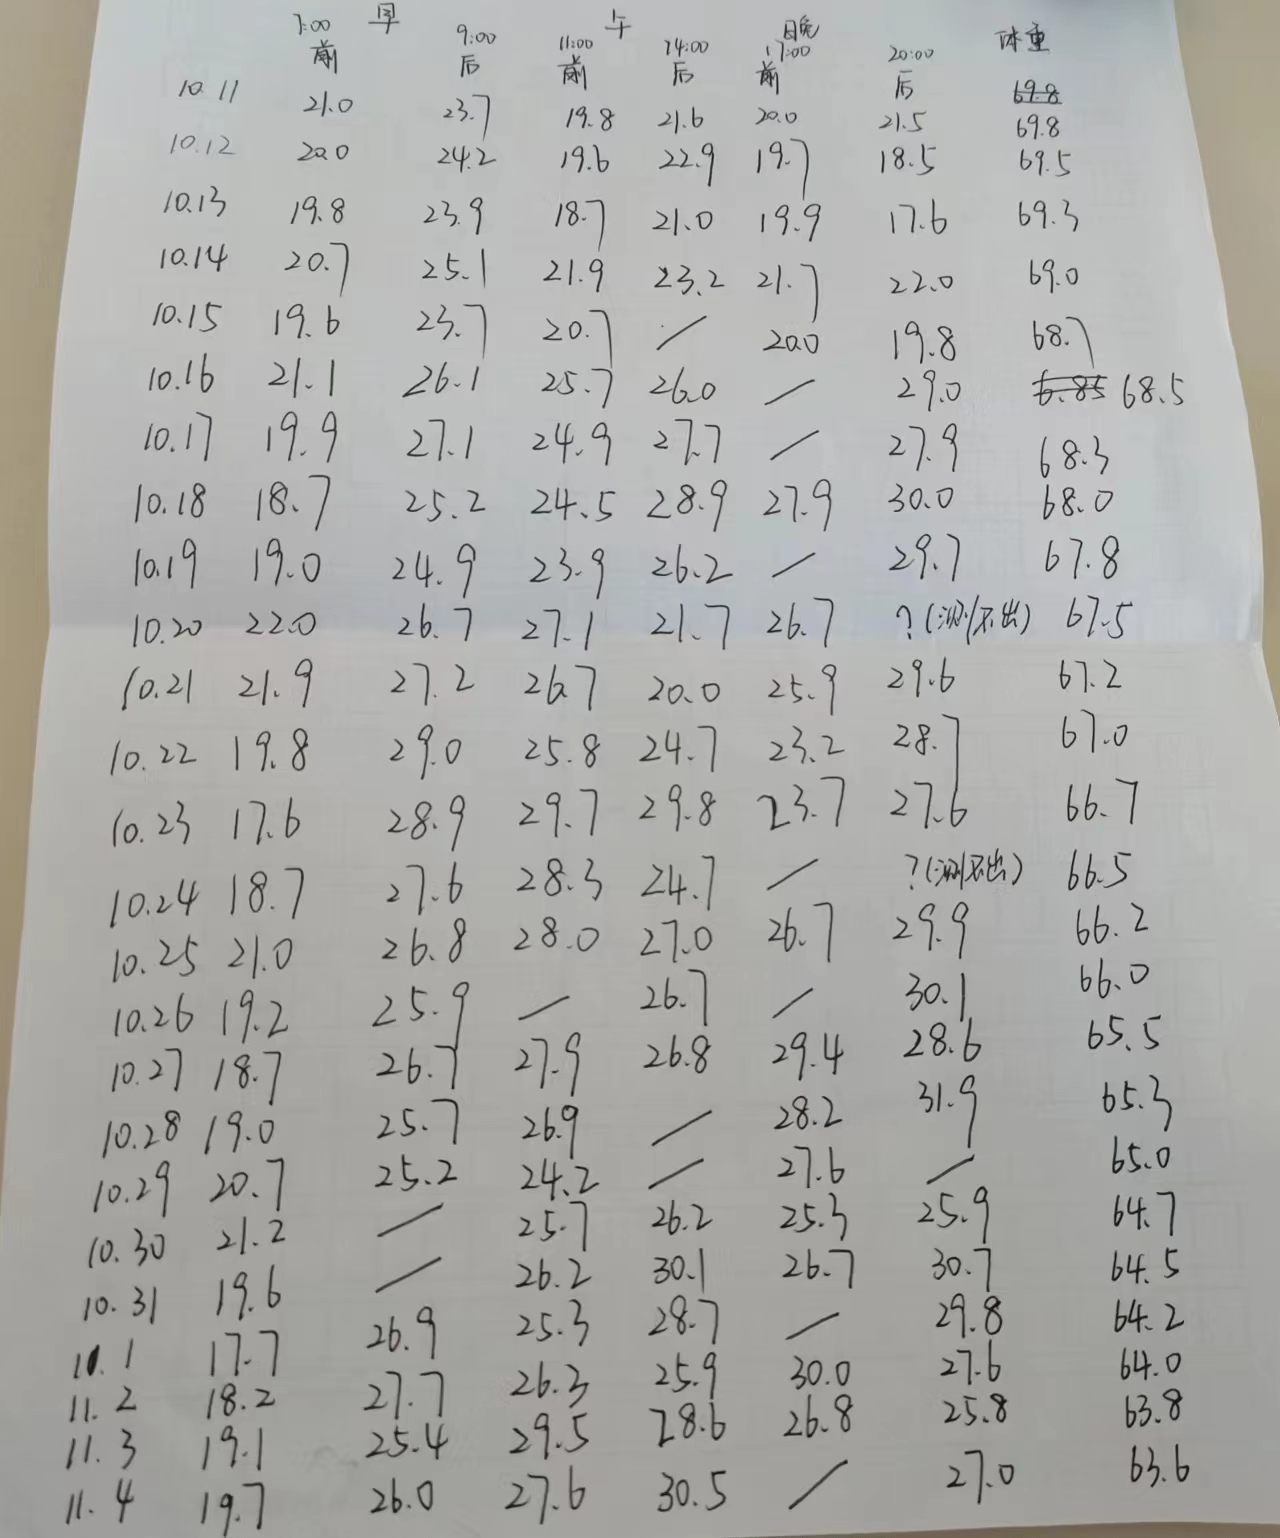 早 午 晚 体重
7:00 9:00 11:00 14:00 17:00 20:00
前 后 前 后 前 后 69.8
10.11 21.0 23.7 19.8 21.6 20.0 21.5 69.8
10.12 20.0 24.2 19.6 22.9 19.7 18.5 69.5
10.13 19.8 23.9 18.7 21.0 19.9 17.6 69.3
10.14 20.7 25.1 21.9 23.2 21.7 22.0 69.0
10.15 19.6 23.7 20.7 / 20.0 19.8 68.7
10.16 21.1 26.1 25.7 26.0 / 29.0 6.85 68.5
10.17 19.9 27.1 24.9 27.7 / 27.9 68.3
10.18 18.7 25.2 24.5 28.9 27.9 30.0 68.0
10.19 19.0 24.9 23.9 26.2 / 29.7 67.8
10.20 22.0 26.7 27.1 21.7 26.7 ?(测不出) 67.5
10.21 21.9 27.2 26.7 20.0 25.9 29.6 67.2
10.22 19.8 29.0 25.8 24.7 23.2 28.7 67.0
10.23 17.6 28.9 29.7 29.8 23.7 27.6 66.7
10.24 18.7 27.6 28.3 24.7 / ?(测不出) 66.5
10.25 21.0 26.8 28.0 27.0 26.7 29.9 66.2
10.26 19.2 25.9 / 26.7 / 30.1 66.0
10.27 18.7 26.7 27.9 26.8 29.4 28.6 65.5
10.28 19.0 25.7 26.9 / 28.2 31.9 65.3
10.29 20.7 25.2 24.2 / 27.6 / 65.0
10.30 21.2 / 25.7 26.2 25.3 25.9 64.7
10.31 19.6 / 26.2 30.1 26.7 30.7 64.5
11.1 17.7 26.9 25.3 28.7 / 29.8 64.2
11.2 18.2 27.7 26.3 25.9 30.0 27.6 64.0
11.3 19.1 25.4 29.5 28.6 26.8 25.8 63.8
11.4 19.7 26.0 27.6 30.5 / 27.0 63.6